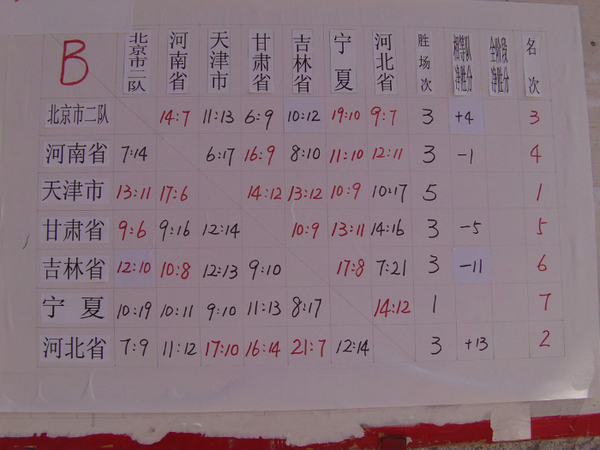 B 北京市二队 河南省 天津市 甘肃省 吉林省 宁夏 河北省 胜场次 相等队净胜分 全阶段净胜分 名次
北京市二队 14:7 11:13 6:9 10:12 19:10 9:7 3 +4 3
河南省 7:14 6:17 16:9 8:10 11:10 12:11 3 -1 4
天津市 13:11 17:6 14:12 13:12 10:9 10:17 5 1
甘肃省 9:6 9:16 12:14 10:9 13:11 14:16 3 -5 5
吉林省 12:10 10:8 12:13 9:10 17:8 7:21 3 -11 6
宁夏 10:19 10:11 9:10 11:13 8:17 14:12 1 7
河北省 7:9 11:12 17:10 16:14 21:7 12:14 3 +13 2